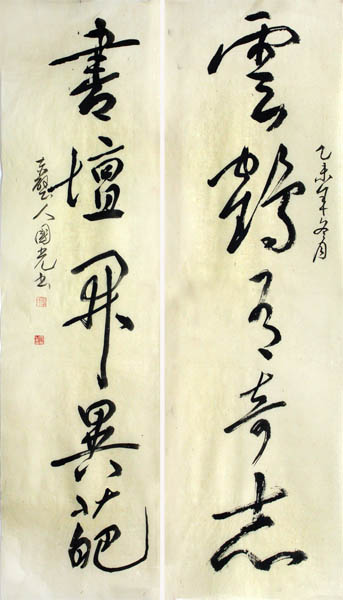 雲鶴有奇志
乙未年冬月
書壇開異葩
人國光書